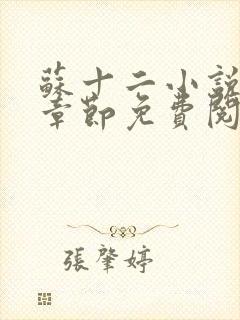 蘇十二小說
章節免費閱
張肇婷